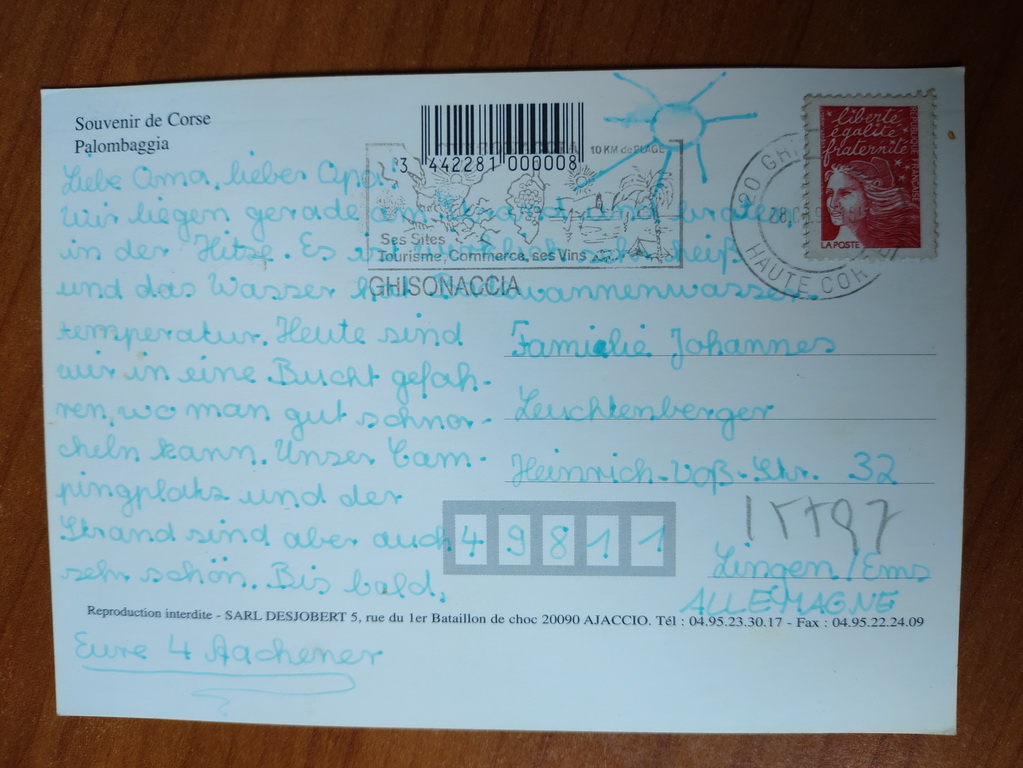 Souvenir de Corse
Palombaggia
3 442281 000008
10 KM de PLAGE
liberté
égalité
fraternité
RÉPUBLIQUE FRANÇAISE
LA POSTE
20 GHI
HAUTE COR
Ses Sites
Tourisme, Commerce, ses Vins
GHISONACCIA
Liebe Oma, lieber Opa!
Wir liegen gerade am Strand und braten
in der Hitze. Es ist wirklich sehr heiß
und das Wasser hat Badewannenwasser-
temperatur. Heute sind
wir in eine Bucht gefah-
ren, wo man gut schnor-
cheln kann. Unser Cam-
pingplatz und der
Strand sind aber auch
sehr schön. Bis bald,
Eure 4 Aachener
Familie Johannes
Leuchtenberger
Heinrich-Voß-Str. 32
49811
Lingen/Ems
ALLEMAGNE
Reproduction interdite - SARL DESJOBERT 5, rue du 1er Bataillon de choc 20090 AJACCIO. Tél : 04.95.23.30.17 - Fax : 04.95.22.24.09